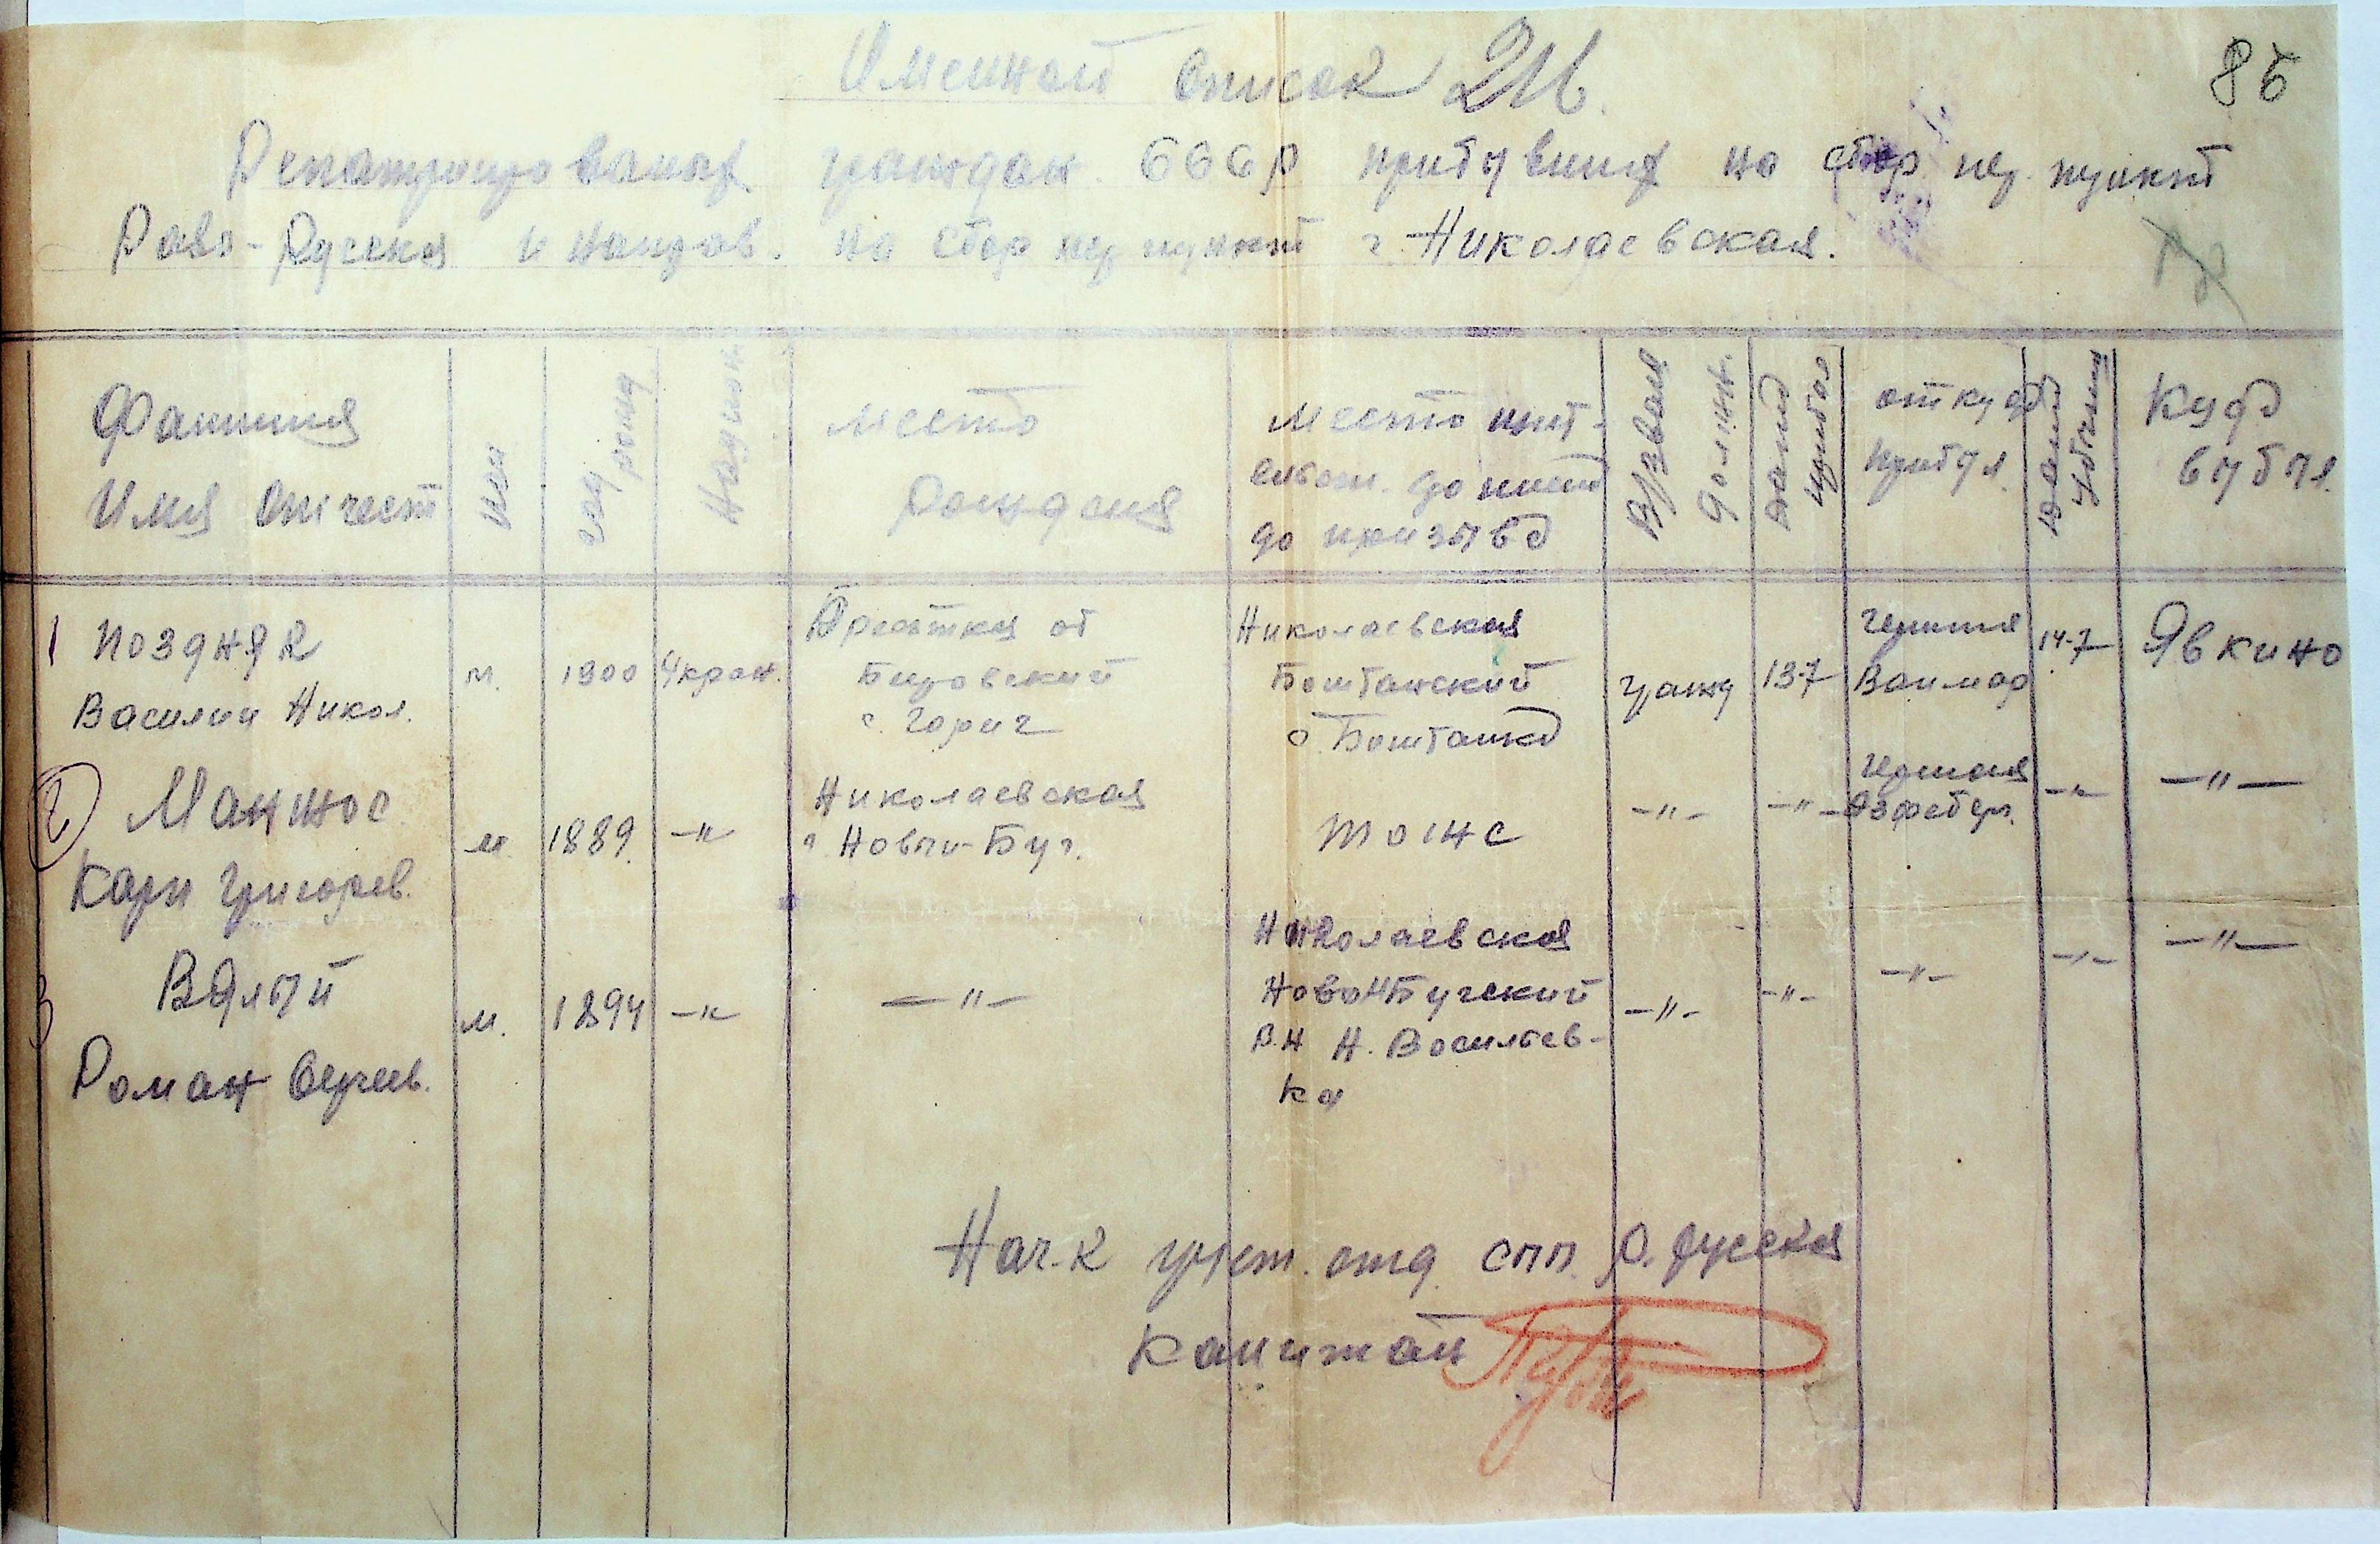 Именной список 211б.
85
Репатрированых граждан СССР прибывших на сбор пер. пункт
Рава-Русская и направ. на сбор пер пункт г. Николаевская.
Фамилия
Имя Отчест
пол
год рожд
Национ.
место
рождения
место жит-
ельст. до
до призыва
В/звания
должн.
дата
прибыл
откуда
прибыл.
дата
убытия
Куда
выбыл.
1 Поздняк
Василий Никол.
м.
1900
Украи.
Брестская об
с. Горич
Николаевская
Боштанский
с. Боштанка
гражд
13-7
Германия
Ваймар
14-7
Явкино
2 Манжос
Карп Григорев.
м
1889.
-"
Николаевская
г. Новый-Буг.
тоже
-"-
-"-
Германия
-"
-"-
3 Вялый
Роман Сергеев.
м.
1894
-"
-"-
Николаевская
Ново-Бугский
Р.Н Н. Васильев-
ка
-"-
-"-
-"-
-"-
-"-
Нач-к учет. отд. СПП. Р. Русская
Капитан